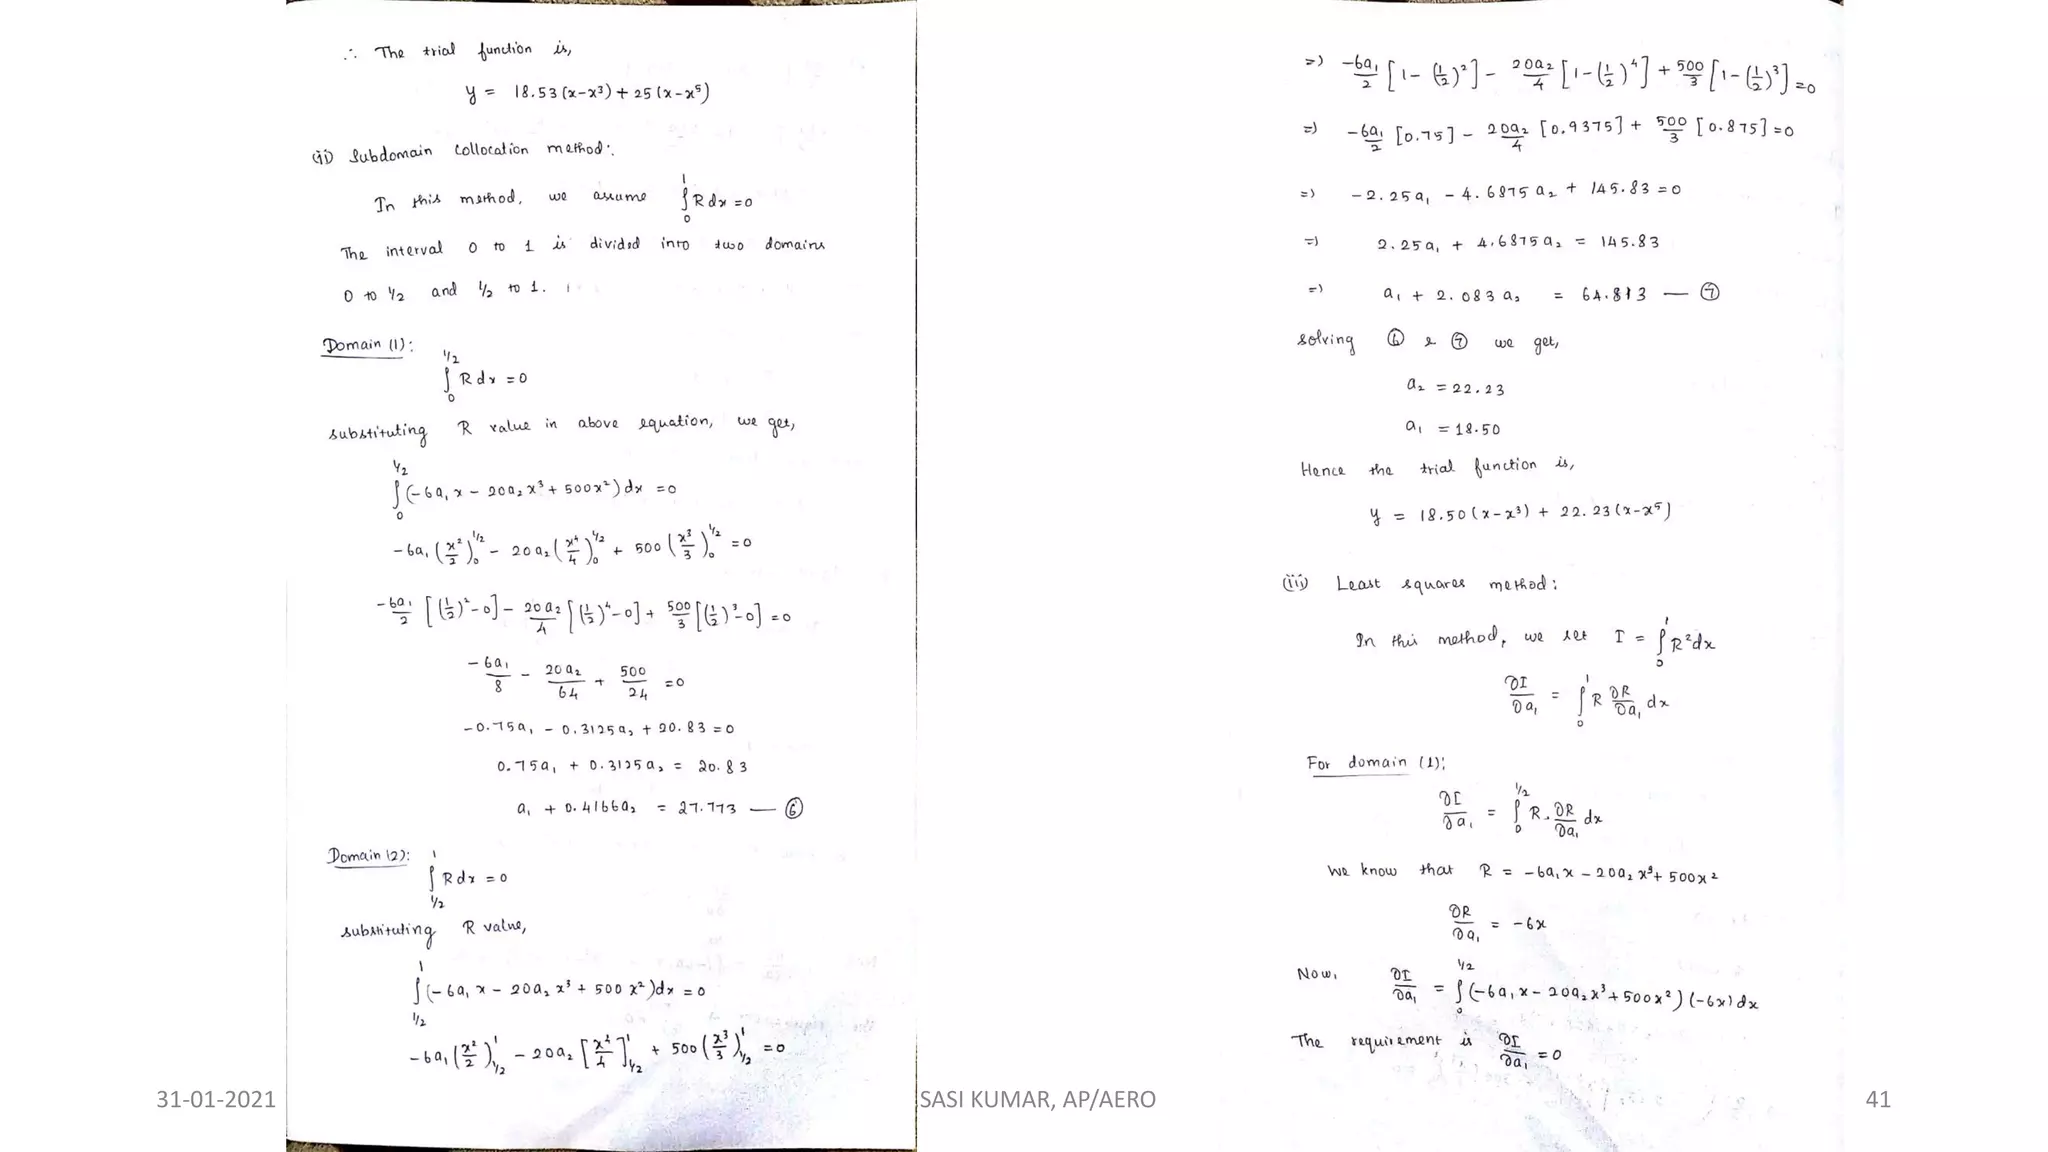 ∴ The trial function is,
y = 18.53 (x-x³) + 25 (x-x⁵)
(ii) Subdomain Collocation method:
In this method, we assume ∫₀¹ R dx = 0
The interval 0 to 1 is divided into two domains
0 to 1/2 and 1/2 to 1.
Domain (1):
∫₀^(1/2) R dx = 0
substituting R value in above equation, we get,
∫₀^(1/2) (-6a₁x - 20a₂x³ + 500x²) dx = 0
-6a₁ (x²/2)₀^(1/2) - 20a₂ (x⁴/4)₀^(1/2) + 500 (x³/3)₀^(1/2) = 0
-6a₁/2 [(1/2)² - 0] - 20a₂/4 [(1/2)⁴ - 0] + 500/3 [(1/2)³ - 0] = 0
-6a₁/8 - 20a₂/64 + 500/24 = 0
-0.75a₁ - 0.3125a₂ + 20.83 = 0
0.75a₁ + 0.3125a₂ = 20.83
a₁ + 0.4166a₂ = 27.773 — ⑥
Domain (2):
∫_(1/2)^1 R dx = 0
substituting R value,
∫_(1/2)^1 (-6a₁x - 20a₂x³ + 500x²) dx = 0
-6a₁ (x²/2)_(1/2)^1 - 20a₂ [x⁴/4]_(1/2)^1 + 500 (x³/3)_(1/2)^1 = 0
=) -6a₁/2 [1 - (1/2)²] - 20a₂/4 [1 - (1/2)⁴] + 500/3 [1 - (1/2)³] = 0
=) -6a₁/2 [0.75] - 20a₂/4 [0.9375] + 500/3 [0.875] = 0
=) -2.25a₁ - 4.6875a₂ + 145.83 = 0
=) 2.25a₁ + 4.6875a₂ = 145.83
=) a₁ + 2.083a₂ = 64.813 — ⑦
solving ⑥ & ⑦ we get,
a₂ = 22.23
a₁ = 18.50
Hence the trial function is,
y = 18.50 (x-x³) + 22.23 (x-x⁵)
(iii) Least squares method:
In this method, we set I = ∫₀¹ R² dx
∂I/∂a₁ = ∫₀¹ R ∂R/∂a₁ dx
For domain (1):
∂I/∂a₁ = ∫₀^(1/2) R. ∂R/∂a₁ dx
We know that R = -6a₁x - 20a₂x³ + 500x²
∂R/∂a₁ = -6x
Now, ∂I/∂a₁ = ∫₀^(1/2) (-6a₁x - 20a₂x³ + 500x²) (-6x) dx
The requirement is ∂I/∂a₁ = 0
31-01-2021
SASI KUMAR, AP/AERO
41